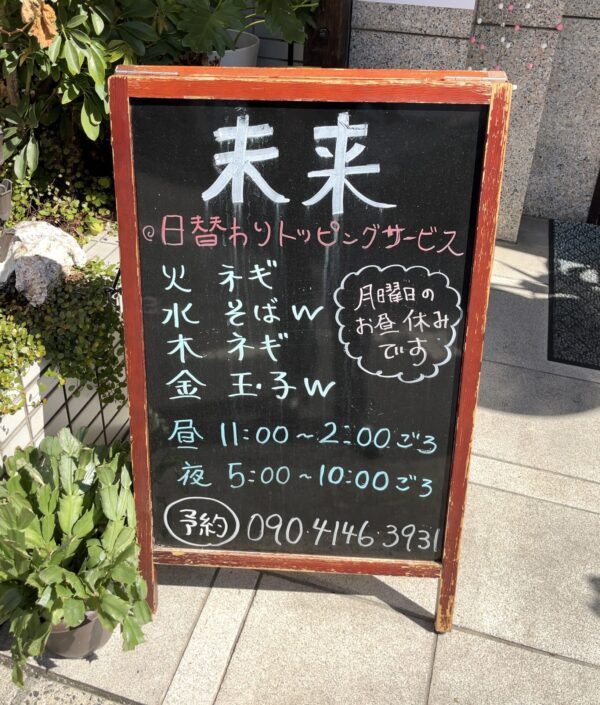 未来
@日替わりトッピングサービス
火 ネギ
水 そばW
木 ネギ
金 玉子W
月曜日の
お昼休み
です
昼 11:00～2:00ごろ
夜 5:00～10:00ごろ
予約 090.4146.3931